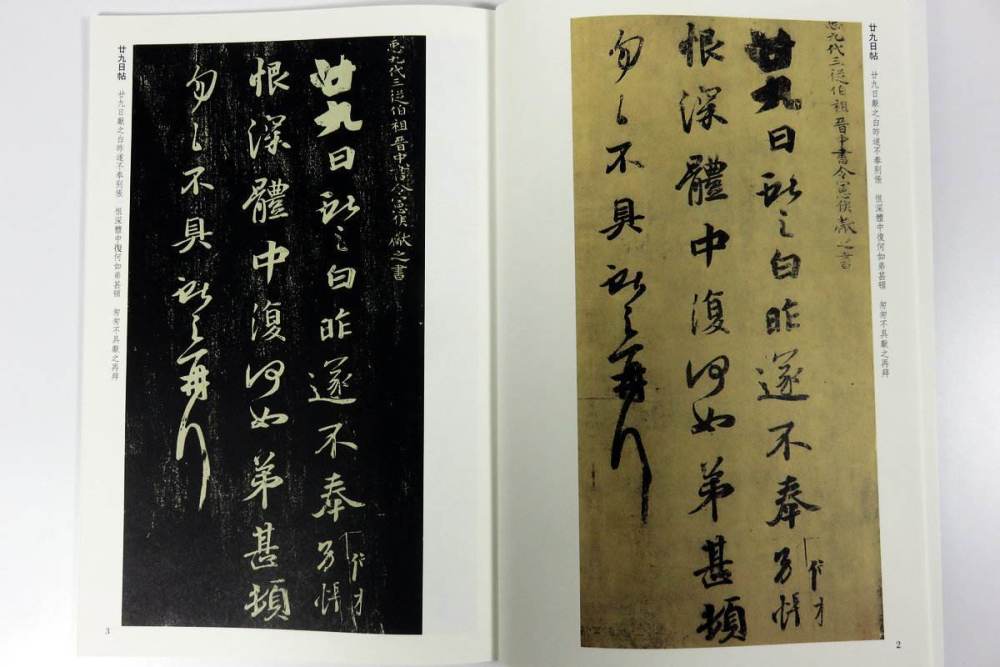 廿九日帖　廿九日獻之白昨遂不奉別悵　恨深體中復何如弟甚頓　匆匆不具獻之再拜
𢘑九代三從伯祖晉中書令憲侯獻之書
廿九日獻之白昨遂不奉別悵
恨深體中復何如弟甚頓
匆匆不具獻之再拜
2
𢘑九代三從伯祖晉中書令憲侯獻之書
廿九日獻之白昨遂不奉別悵
恨深體中復何如弟甚頓
匆匆不具獻之再拜
廿九日帖　廿九日獻之白昨遂不奉別悵　恨深體中復何如弟甚頓　匆匆不具獻之再拜
3